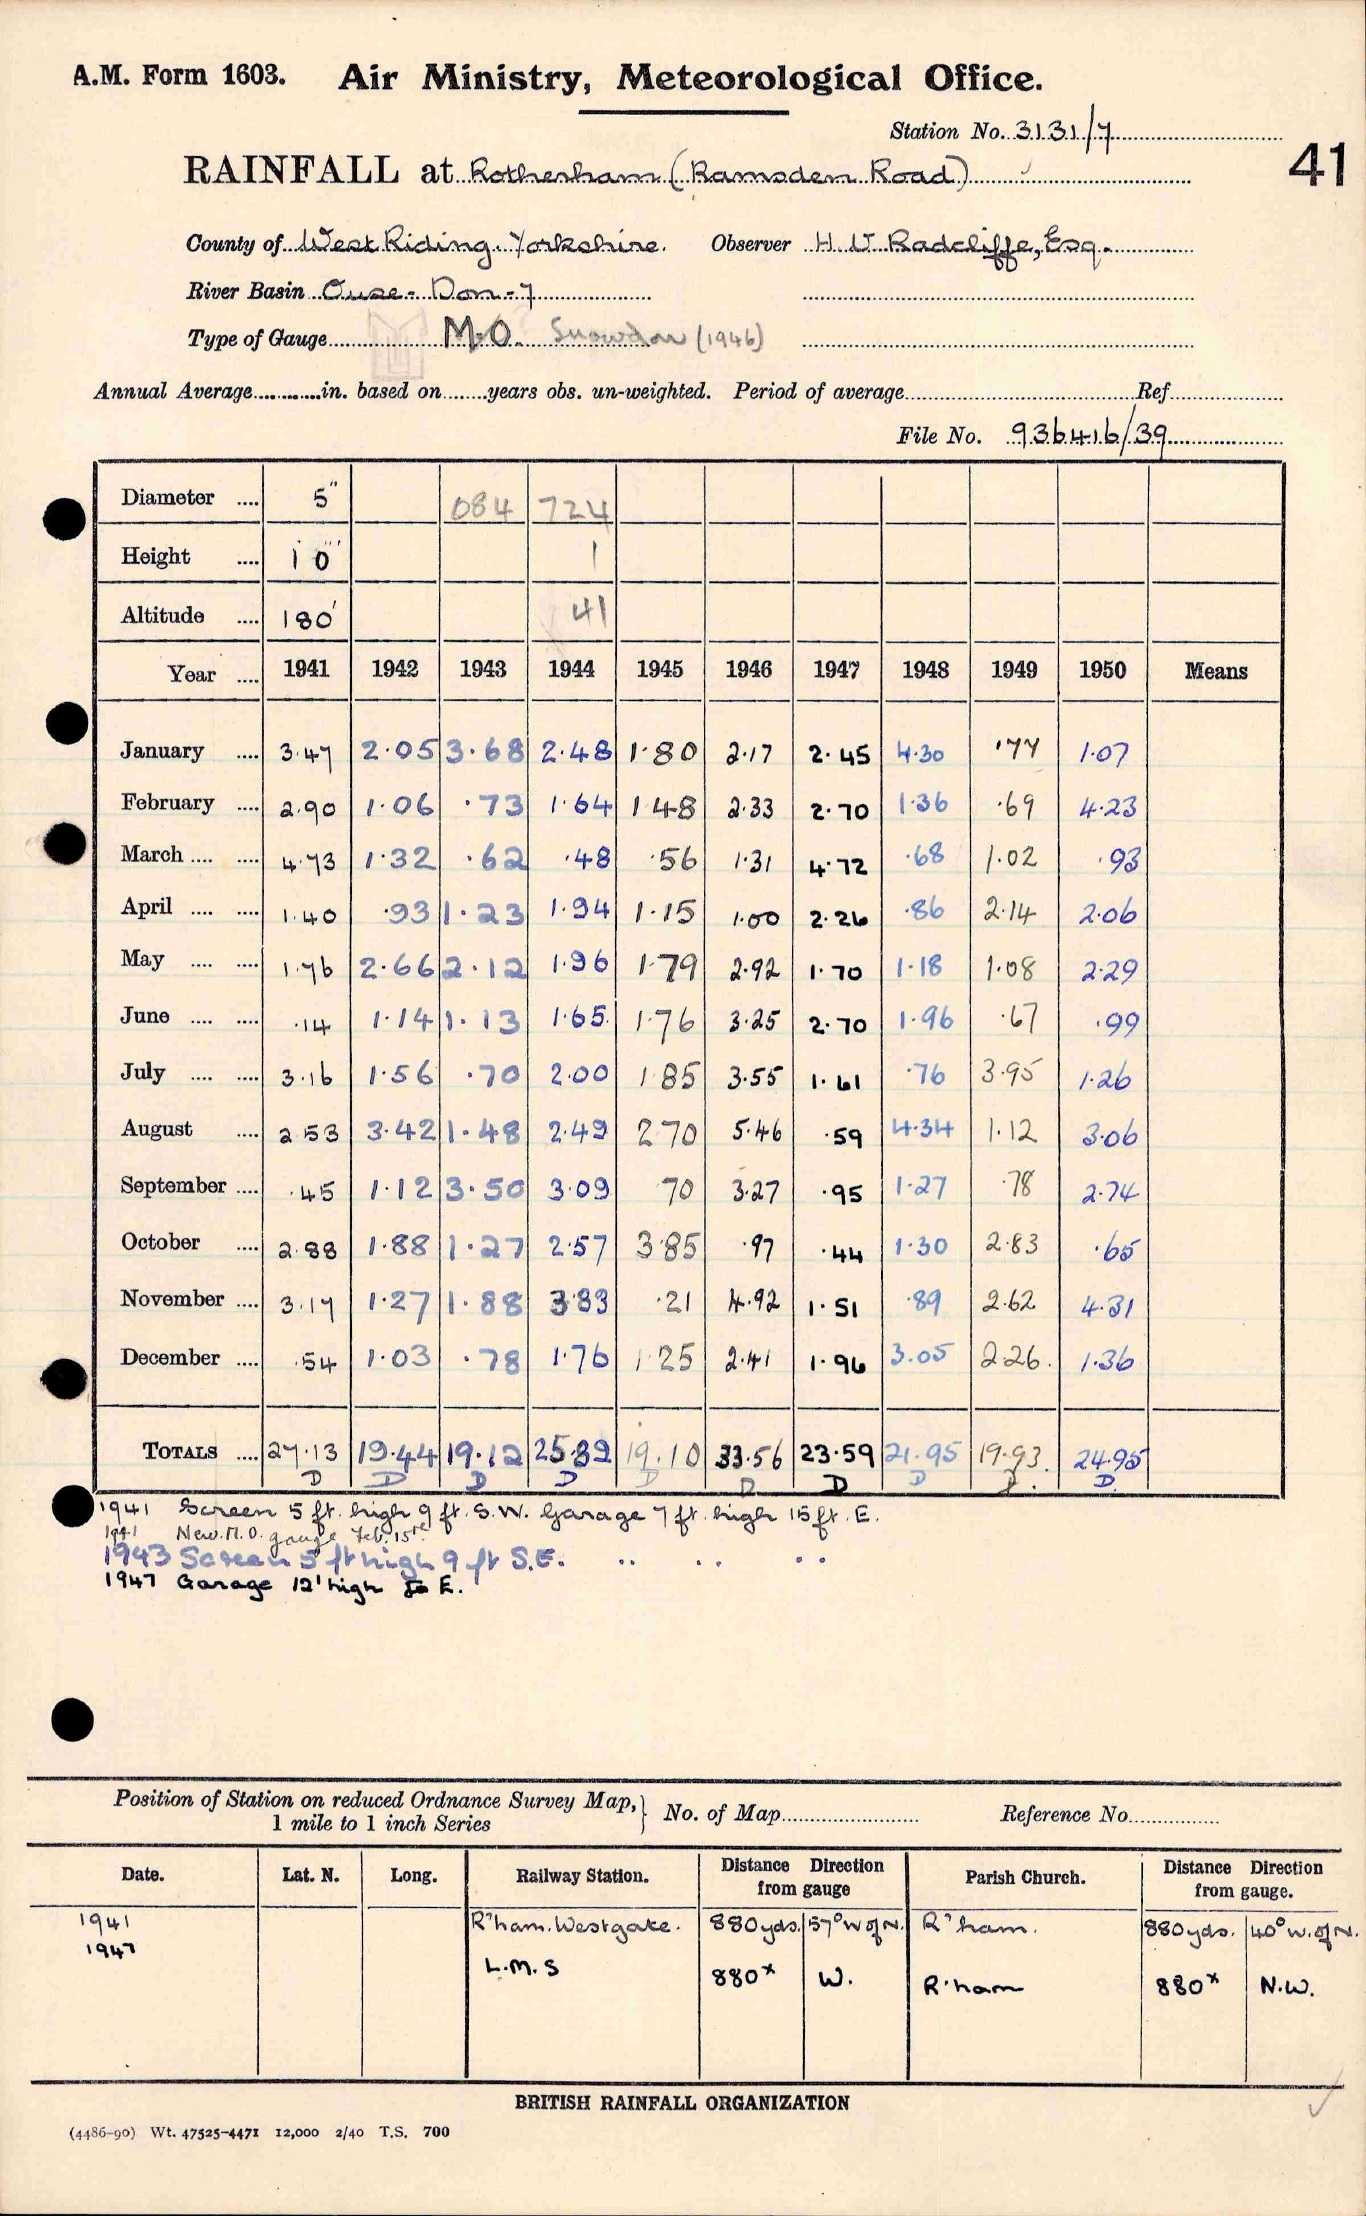 A.M. Form 1603. Air Ministry, Meteorological Office.
Station No. 3131/7
41
RAINFALL at Rotherham (Ramsden Road)
County of West Riding. Yorkshire. Observer H V Radcliffe, Esq.
River Basin Ouse - Don - 7
Type of Gauge M.O. Snowdon (1946)
Annual Average............in. based on........years obs. un-weighted. Period of average........................Ref............
File No. 936416/39
Diameter .... 5" 084 724
Height .... 1' 0" 1
Altitude .... 180' 41
Year .... 1941 1942 1943 1944 1945 1946 1947 1948 1949 1950 Means
January .... 3.47 2.05 3.68 2.48 1.80 2.17 2.45 4.30 .77 1.07
February .... 2.90 1.06 .73 1.64 1.48 2.33 2.70 1.36 .69 4.23
March .... .... 4.73 1.32 .62 .48 .56 1.31 4.72 .68 1.02 .93
April .... .... 1.40 .93 1.23 1.94 1.15 1.00 2.26 .86 2.14 2.06
May .... .... 1.76 2.66 2.12 1.96 1.79 2.92 1.70 1.18 1.08 2.29
June .... .... .14 1.14 1.13 1.65 1.76 3.25 2.70 1.96 .67 .99
July .... .... 3.16 1.56 .70 2.00 1.85 3.55 1.61 .76 3.95 1.26
August .... 2.53 3.42 1.48 2.49 2.70 5.46 .59 4.34 1.12 3.06
September .... .45 1.12 3.50 3.09 .70 3.27 .95 1.27 .78 2.74
October .... 2.88 1.88 1.27 2.57 3.85 .97 .44 1.30 2.83 .65
November .... 3.17 1.27 1.88 3.83 .21 4.92 1.51 .89 2.62 4.31
December .... .54 1.03 .78 1.76 1.25 2.41 1.96 3.05 2.26 1.36
TOTALS .... 27.13 19.44 19.12 25.89 19.10 33.56 23.59 21.95 19.93 24.95
D D D D D D D D D D
1941 Screen 5 ft. high 9 ft. S.W. Garage 7 ft. high 15 ft. E.
1941 New M.O. gauge Feb. 15th
1943 Screen 5 ft high 9 ft S.E. " " "
1947 Garage 12' high to E.
Position of Station on reduced Ordnance Survey Map, 1 mile to 1 inch Series } No. of Map............ Reference No............
Date. Lat. N. Long. Railway Station. Distance Direction from gauge Parish Church. Distance Direction from gauge.
1941 R'ham. Westgate. 880yds. 57° W of N. R'ham. 880yds. 40° W. of N.
1947 L.M.S 880x W. R'ham 880x N.W.
BRITISH RAINFALL ORGANIZATION
(4486-90) Wt. 47525-4471 12,000 2/40 T.S. 700